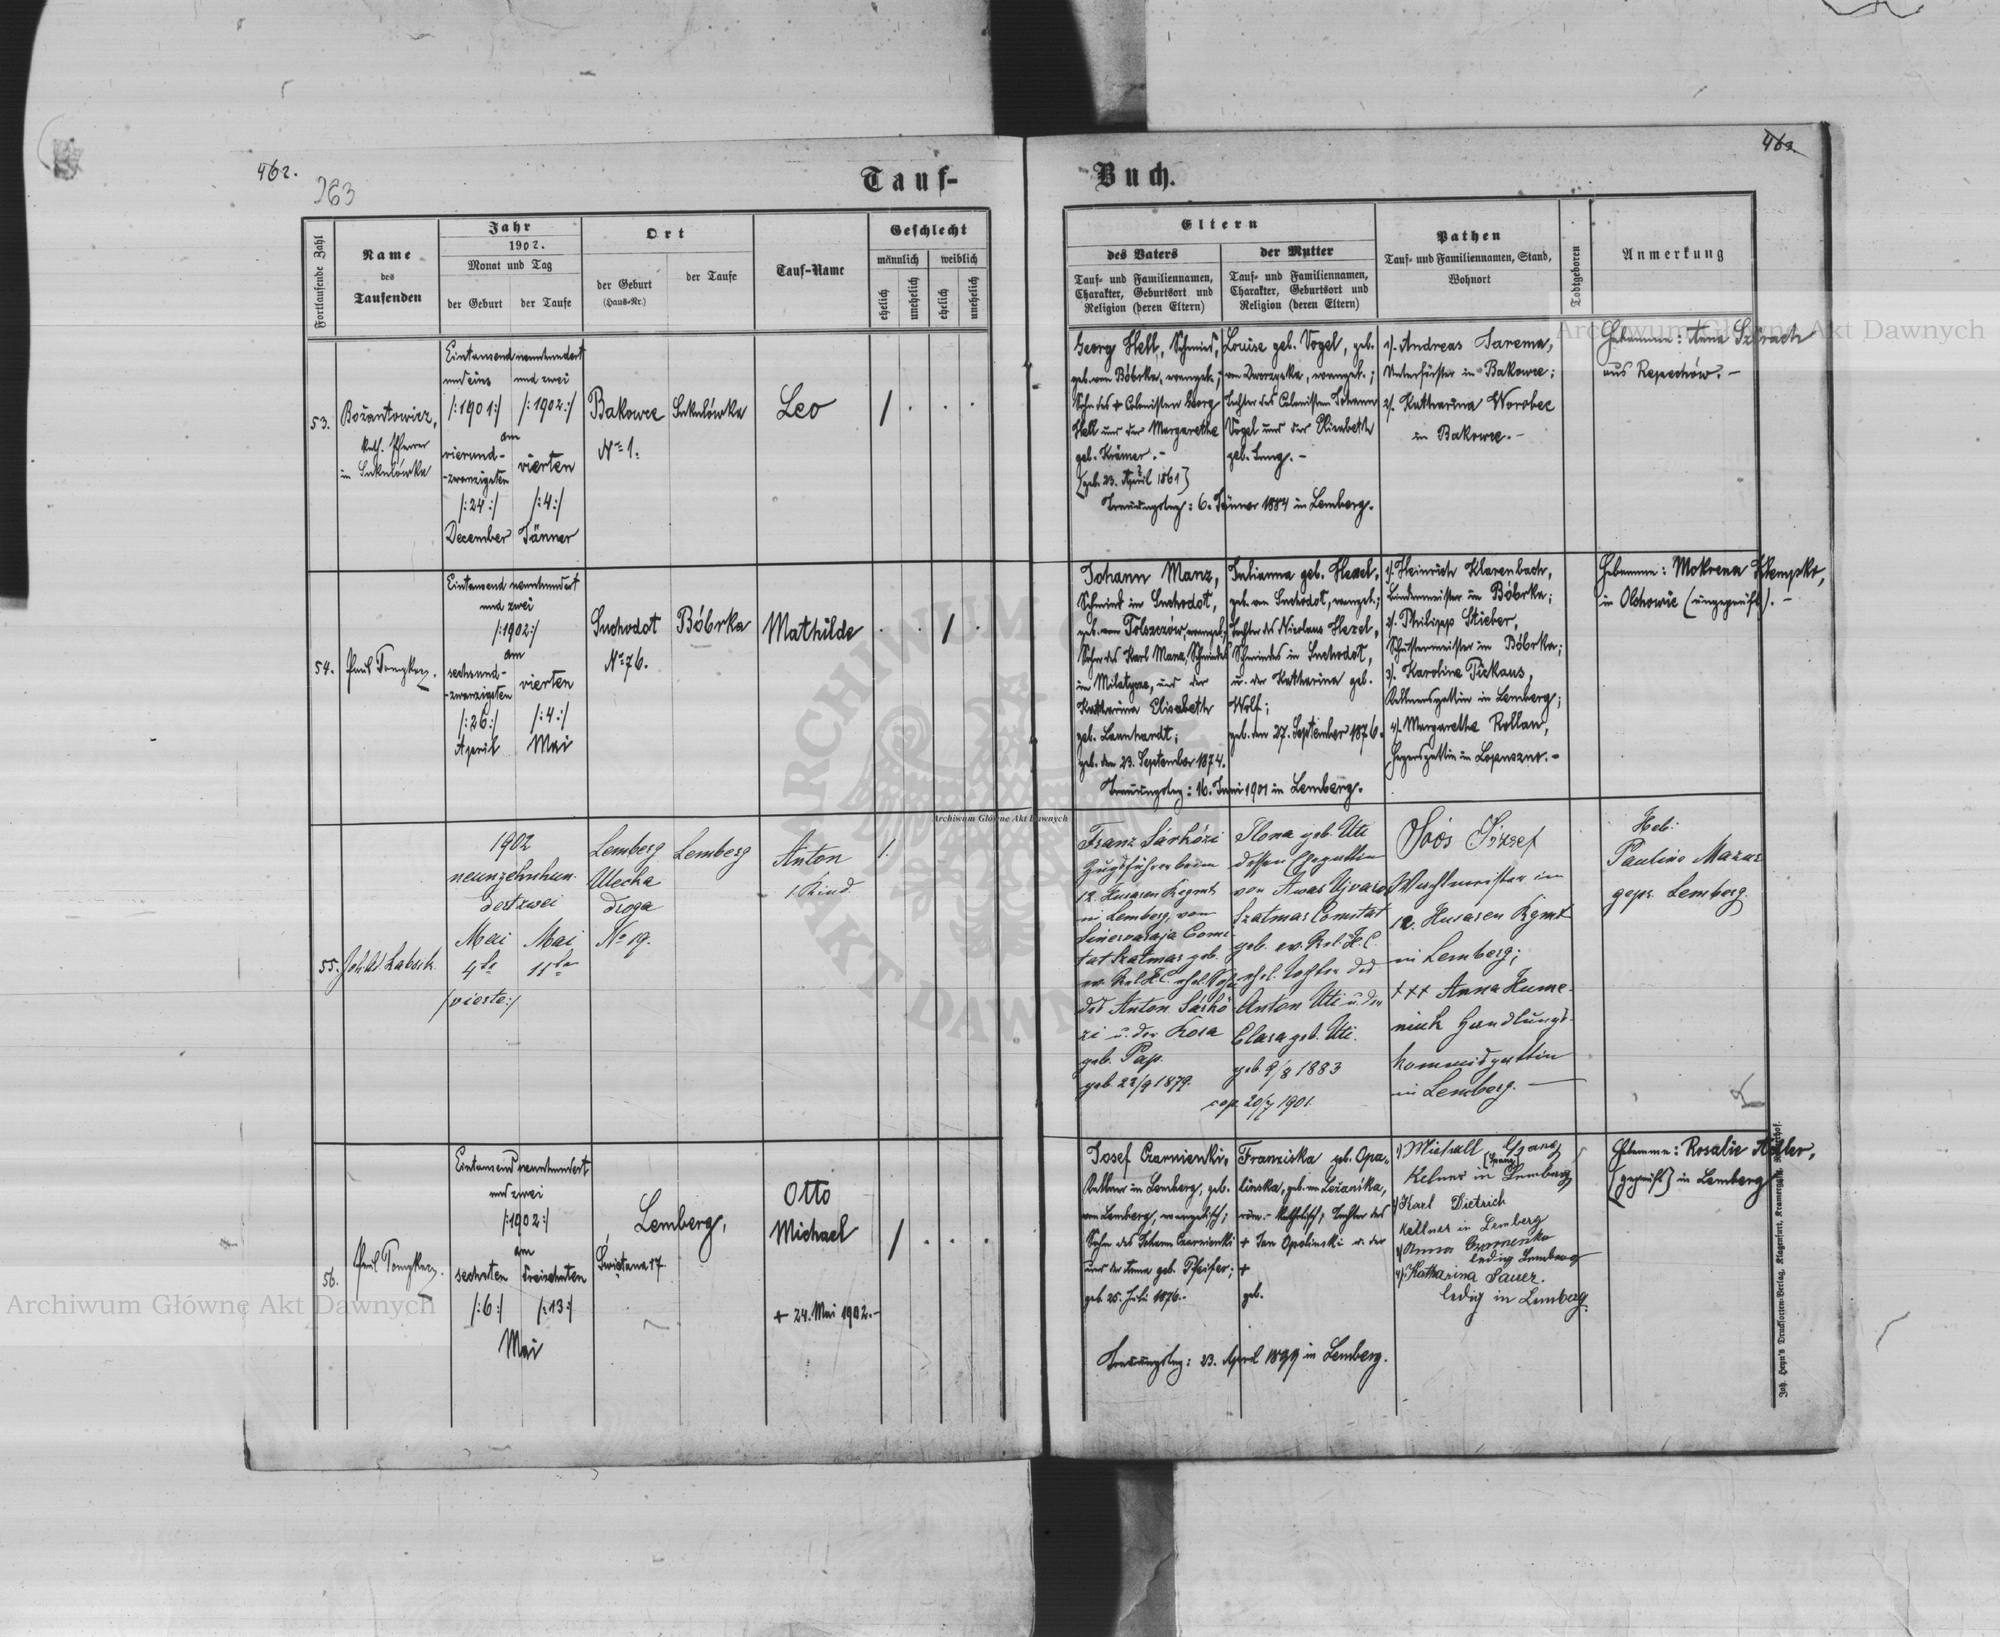 462.
263
463.
Tauf-
Buch.
Fortlaufende Zahl
Name
des
Taufenden
Jahr
1902.
Monat und Tag
der Geburt
der Taufe
Ort
der Geburt
(Haus-Nr.)
der Taufe
Tauf-Name
Geschlecht
männlich
weiblich
ehelich
unehelich
ehelich
unehelich
Eltern
des Vaters
Tauf- und Familiennamen,
Charakter, Geburtsort und
Religion (deren Eltern)
der Mutter
Tauf- und Familiennamen,
Charakter, Geburtsort und
Religion (deren Eltern)
Pathen
Tauf- und Familiennamen, Stand,
Wohnort
Todtgeboren
Anmerkung
53.
Bożantowicz,
kath. Pfarrer
in Sokołówka
Eintausend neunhundert
und eins
und zwei
/:1901:/
/:1902:/
am
vierund-
-zwanzigsten
vierten
/:24:/
/:4:/
December
Jänner
Bakowce
Nº 1.
Sokołówka
Leo
/
Georg Hell, Schmied,
geb. von Bóbrka, evangel.;
Sohn des + Colonisten Georg
Hell und der Margarethe
geb. Krämer. -
[geb. 23. April 1861]
Louise geb. Vogel, geb.
Tochter des Colonisten Johann
Vogel und der Elisabeth
geb. Lung. -
Trauungstag: 6. Jänner 1884 in Lemberg.
1/. Andreas Jarema,
Unterförster in Bakowce;
2/. Katharina Worobec
in Bakowce. -
Hebamme: Anna
aus Repechów. -
54.
Paul
Eintausend neunhundert
und zwei
/:1902:/
am
sechsund-
-zwanzigsten
vierten
/:26:/
/:4:/
April
Mai
Suchodoł
Nº 76.
Bóbrka
Mathilde
/
Johann Manz,
Schmied in Suchodoł,
geb. von Tolszczów, evangel.;
Sohn des Karl Manz, Schmiedes
in Milatycze, und der
Katharina Elisabeth
geb. Launhardt;
geb. den 23. September 1874.
Julianna geb. Hexel,
geb. von Suchodoł, evangel.;
Tochter des Nicolaus Hexel,
Schmiedes in Suchodoł,
u. der Katharina geb.
Wolf;
geb. den 27. September 1876.
Trauungstag: 16. Juni 1901 in Lemberg.
1/. Heinrich Klarenbach,
in Bóbrka;
2/. Philipp Stieber,
Schustermeister in Bóbrka;
3/. Karoline Piekaus,
Kellnersgattin in Lemberg;
4/. Margarethe Rollau,
Hegersgattin in Lopuszna. -
Hebamme: Mokrena
in Olchowie (ungeprüft). -
55.
1902
neunzehnhun-
dertzwei
Mai
Mai
4te
11te
/vierte:/
Lemberg
Ulecka
droga
Nº 19.
Lemberg
Anton
1. Kind
1.
Franz Sárközi
Zugsführer beim
12. Husaren Regmt
in Lemberg, von
Comi-
tat Szatmar geb.
ev. Rel. H.C. ehel. Sohn
des Anton Sárkö
zi u. der Rosa
geb. Pap.
geb. 22/9 1879.
Ilona geb. Uti
dessen Ehegattin
von Avas Ujvaros
Szatmar Comitat
geb. ev. Rel. H.C.
ehel. Tochter des
Anton Uti u. der
Clara geb. Uti.
geb. 9/8 1883
cop. 20/7 1901.
Soós József
Wachtmeister im
12. Husaren Rgmt
in Lemberg;
+++ Anna Hume-
niuk Handlungs-
kommisgattin
in Lemberg.
Heb:
Pauline Mazur
gepr. Lemberg.
56.
Paul
Eintausend neunhundert
und zwei
/:1902:/
am
sechsten
dreizehnten
/:6:/
/:13:/
Mai
Lemberg,
Świętana 17
Otto
Michael
+ 24. Mai 1902. -
/
Josef Czarniecki,
Kellner in Lemberg, geb.
von Lemberg, evangelisch;
Sohn des Johann Czarniecki
und der Anna geb. Pfeifer;
geb. 25. Juli 1876. -
Franziska geb. Opa-
linska, geb. von Leżanika,
röm.-katholisch; Tochter des
+ Jan Opalinski u. der
+
geb.
Trauungstag: 23. April 1899 in Lemberg.
1)
Kelner in Lemberg
2) Karl Dietrich
Kellner in Lemberg
3) Anna
ledig Lemberg
4). Katharina Sauer.
ledig in Lemberg.
Hebamme: Rosalie Adler,
[geprüft] in Lemberg
Joh. Heyn's Drucksorten-Verlag, Klagenfurt,
Archiwum Główne Akt Dawnych
Archiwum Główne Akt Dawnych
Archiwum Główne Akt Dawnych
ARCHIWUM GŁÓWNE AKT DAWNYCH